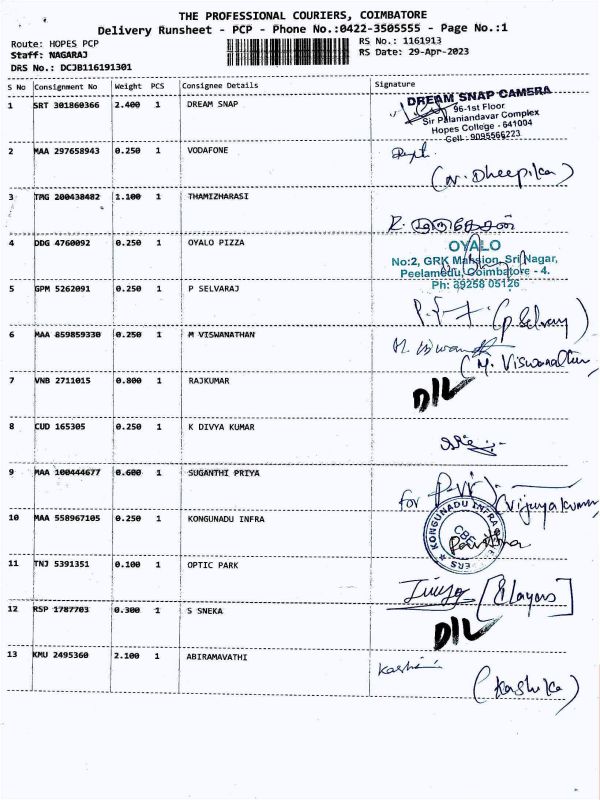 THE PROFESSIONAL COURIERS, COIMBATORE
Delivery Runsheet - PCP - Phone No.:0422-3505555 - Page No.:1
Route: HOPES PCP
RS No.: 1161913
Staff: NAGARAJ
RS Date: 29-Apr-2023
DRS No.: DCJB116191301
S No Consignment No Weight PCS Consignee Details Signature
1 SRT 301860366 2.400 1 DREAM SNAP
DREAM SNAP CAMERA
96-1st Floor
Sir Palaniandavar Complex
Hopes College - 641004
Cell - 9095566223
2 MAA 297658943 0.250 1 VODAFONE
(N. Dheepika)
3 TMG 200438482 1.100 1 THAMIZHARASI
4 DDG 4760092 0.250 1 OYALO PIZZA
OYALO
No:2, GRK Mansion, Sri Nagar,
Peelamedu, Coimbatore - 4.
Ph: 89258 05126
5 GPM 5262091 0.250 1 P SELVARAJ
(P. Selvaraj)
6 MAA 859859330 0.250 1 M VISWANATHAN
(M. Viswanathan
7 VNB 2711015 0.800 1 RAJKUMAR
DIL
8 CUD 165305 0.250 1 K DIVYA KUMAR
9 MAA 100444677 0.600 1 SUGANTHI PRIYA
for
(Vijayakumar
10 MAA 558967105 0.250 1 KONGUNADU INFRA
KONGUNADU INFRA
CBE
Pavithra
11 TNJ 5391351 0.100 1 OPTIC PARK
[Elayas]
12 RSP 1787703 0.300 1 S SNEKA
DIL
13 KMU 2495360 2.100 1 ABIRAMAVATHI
(Kashika)